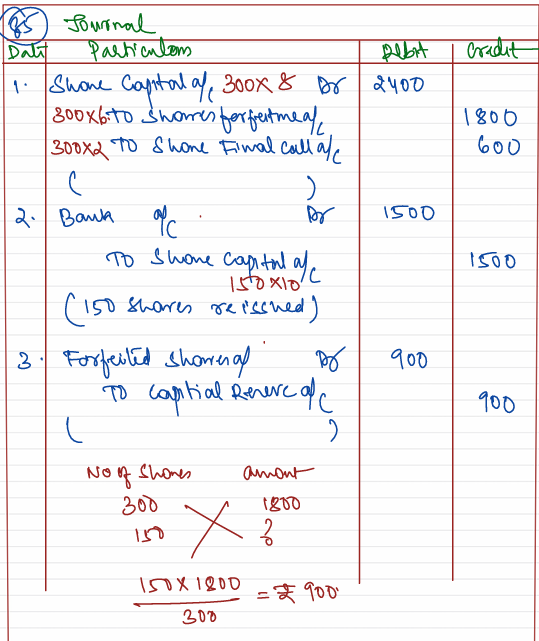 Q5 Journal
Date Particulars Debit Credit
1. Share Capital a/c 300×8 Dr 2400
300×6 To Shares forfeitme a/c 1800
300×2 To Share Final call a/c 600
( )
2. Bank a/c Dr 1500
To Share Capital a/c 1500
150×10
(150 shares reissued)
3. Forfeited shares a/ Dr 900
To Capital Reserve a/c 900
( )
No of Shares amount
300 1800
150 ?
150 × 1800 / 300 = ₹ 900